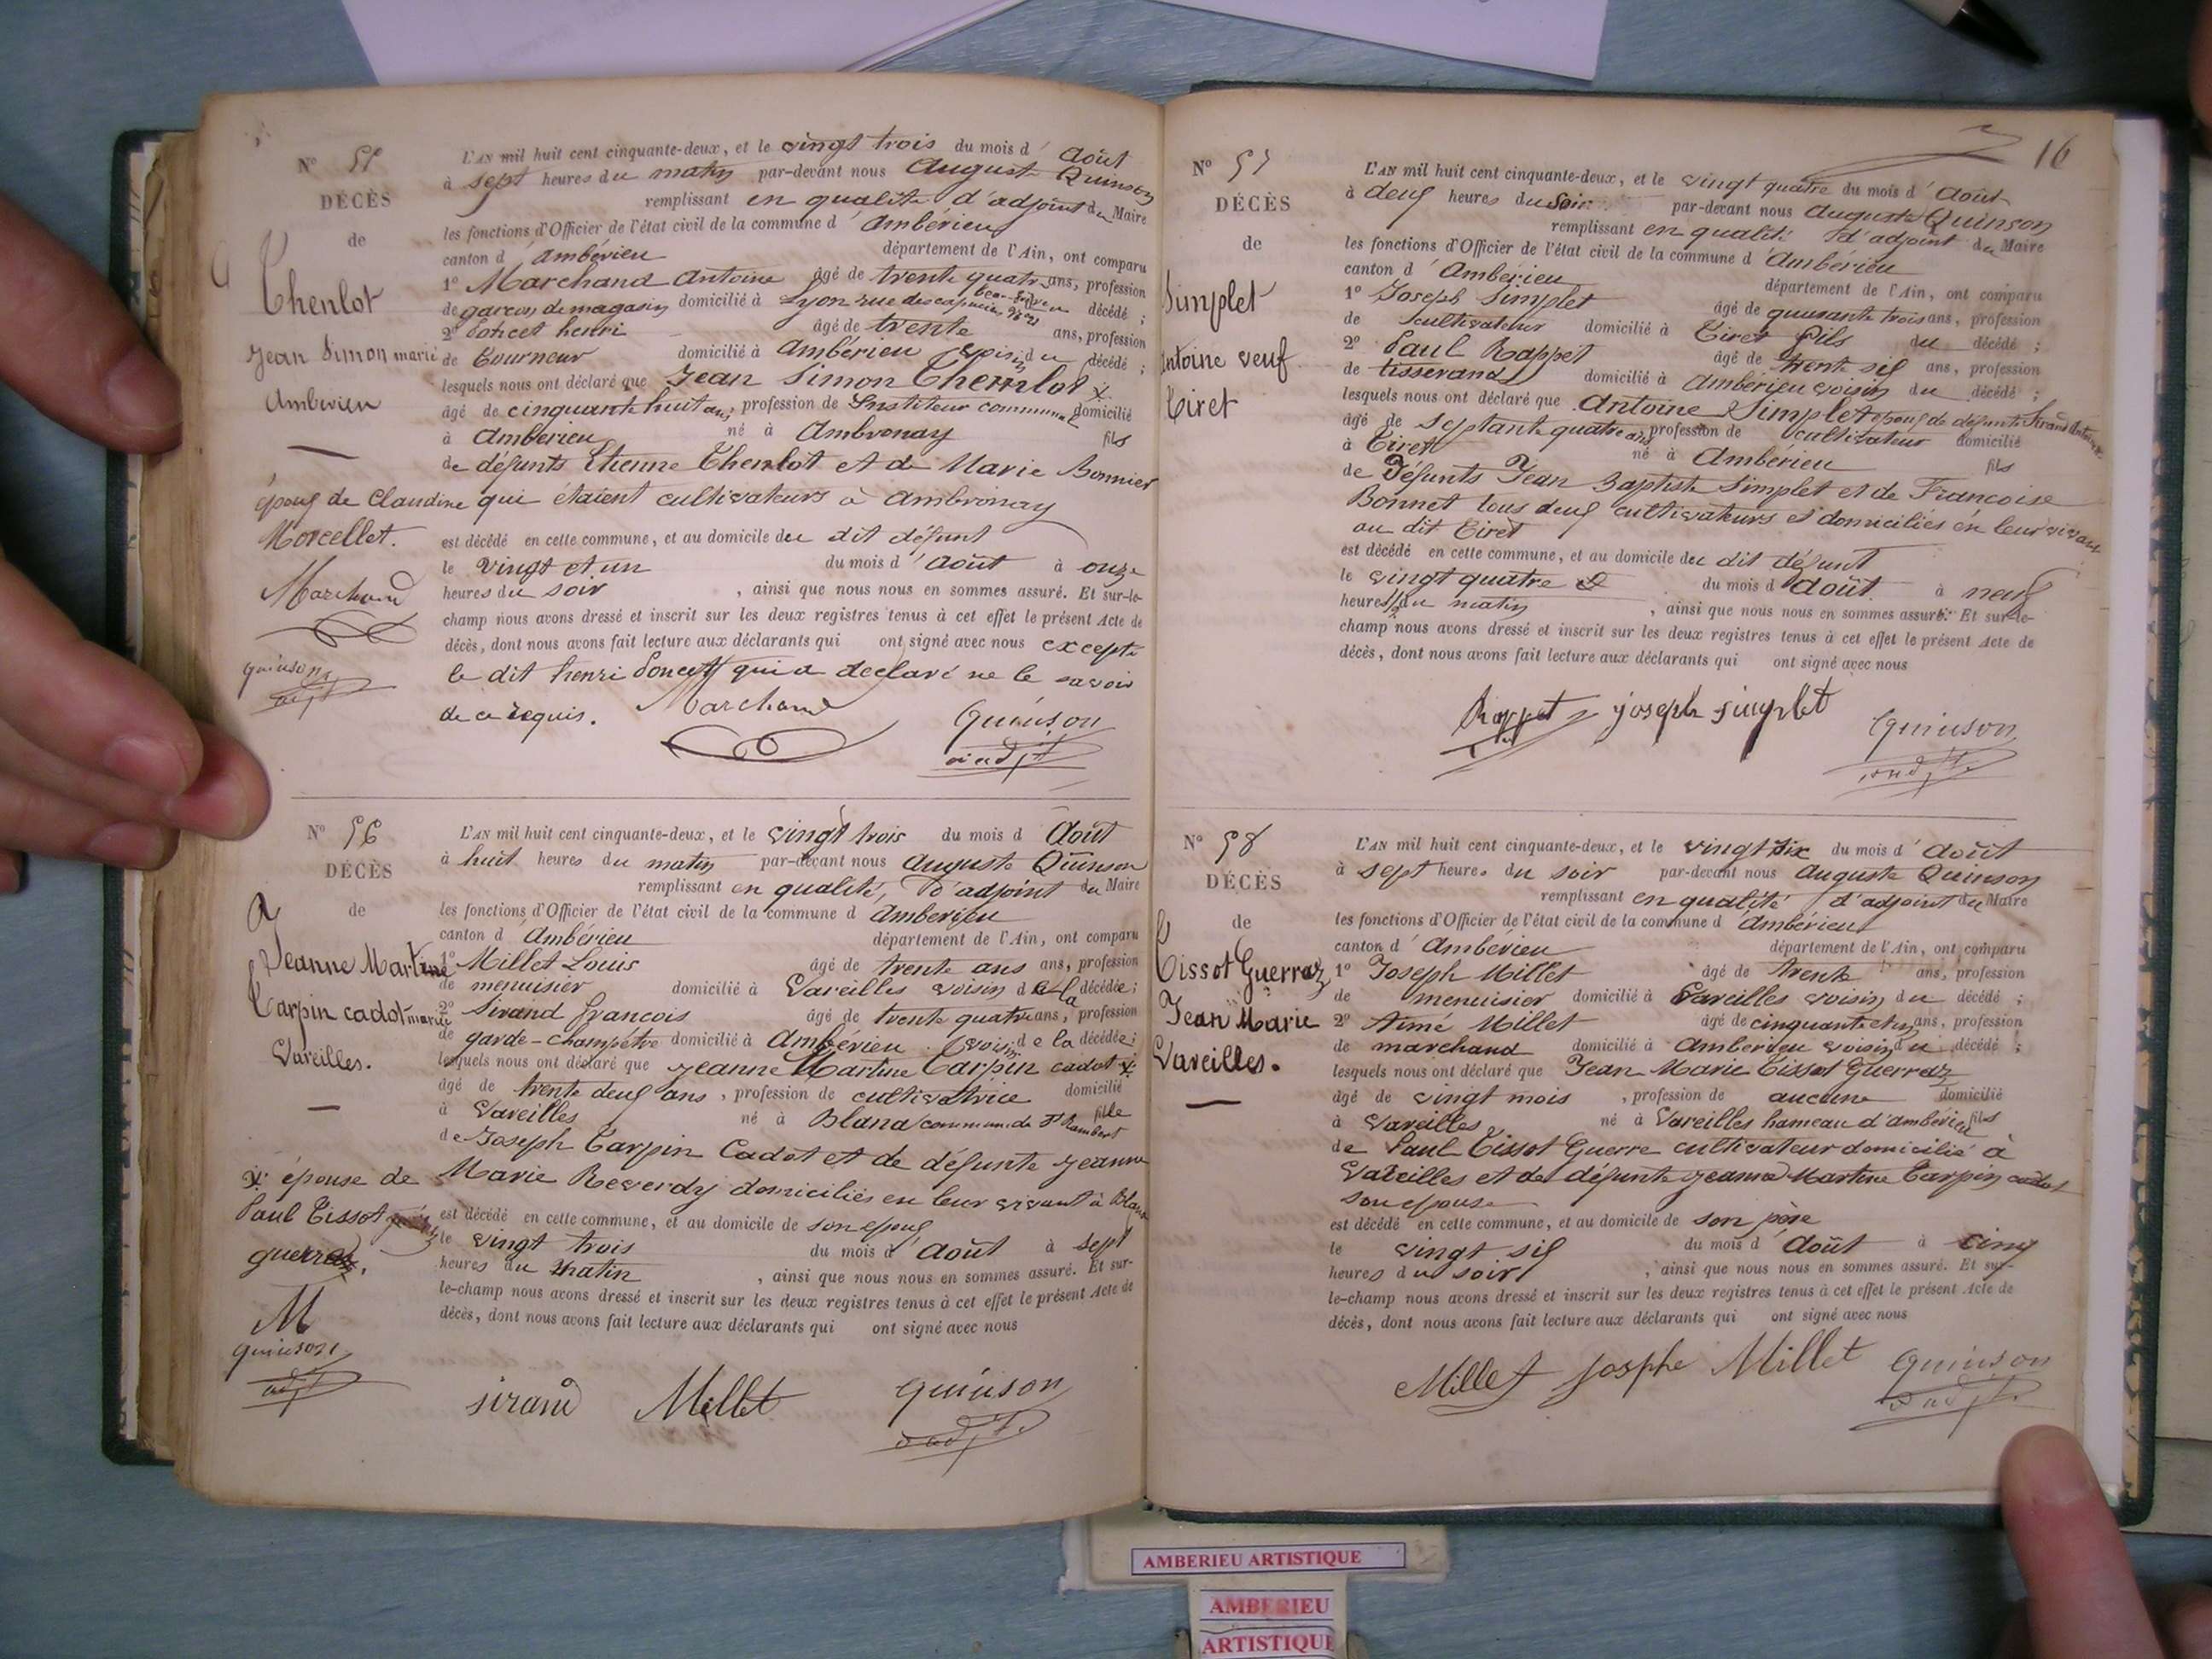 Nº 55
DÉCÈS
de
Thenlot
Jean Simon marié
Ambérieu
L'AN mil huit cent cinquante-deux, et le vingt trois du mois d' Août
à sept heures du matin par-devant nous August Quinson
remplissant en qualité d'adjoint du Maire
les fonctions d'Officier de l'état civil de la commune d' Ambérieu
canton d' Ambérieu département de l'Ain, ont comparu
1º Marchand Antoine âgé de trente quatre ans, profession
de garçon de magasin domicilié à Lyon rue des capucins beau-frère du décédé ;
2º Poncet henri âgé de trente ans, profession
de Tourneur domicilié à Ambérieu voisin du décédé ;
lesquels nous ont déclaré que Jean Simon Thenlot x
âgé de cinquante huit ans, profession de Instituteur communal domicilié
à Ambérieu né à Ambronay fils
de défunts Etienne Thenlot et de Marie Bonnier
époux de Claudine qui étaient cultivateurs à Ambronay
Morcellet.
est décédé en cette commune, et au domicile du dit défunt
le vingt et un du mois d' Août à onze
heures du soir , ainsi que nous nous en sommes assuré. Et sur-le-
champ nous avons dressé et inscrit sur les deux registres tenus à cet effet le présent Acte de
décès, dont nous avons fait lecture aux déclarants qui ont signé avec nous excepté
le dit henri Poncet qui a déclaré ne le savoir
de ce requis. Marchand Quinson
adjt
Marchand
quinson
adjt
Nº 56
DÉCÈS
de
Jeanne Martine
Tarpin cadot mariée
Vareilles.
L'AN mil huit cent cinquante-deux, et le vingt trois du mois d Août
à huit heures du matin par-devant nous Auguste Quinson
remplissant en qualité, d'adjoint du Maire
les fonctions d'Officier de l'état civil de la commune d Ambérieu
canton d' Ambérieu département de l'Ain, ont comparu
1º Millet Louis âgé de trente ans ans, profession
de menuisier domicilié à Vareilles voisin de la décédée ;
2º Sirand françois âgé de trente quatre ans, profession
de garde-champêtre domicilié à Ambérieu voisin de la décédée ;
lesquels nous ont déclaré que Jeanne Martine Tarpin cadot x
âgé de trente deux ans , profession de cultivatrice domicilié
à Vareilles né à Blana commune de St Rambert fille
de Joseph Tarpin Cadot et de défunte Jeanne
Marie Reverdy domiciliés en leur vivant à Blana
x épouse de
Paul Tissot
guerraz.
est décédé en cette commune, et au domicile de son époux
le vingt trois du mois d' Août à sept
heures du matin , ainsi que nous nous en sommes assuré. Et sur-
le-champ nous avons dressé et inscrit sur les deux registres tenus à cet effet le présent Acte de
décès, dont nous avons fait lecture aux déclarants qui ont signé avec nous
M
quinson
adjt
sirand Millet quinson
adjt
16
Nº 57
DÉCÈS
de
Simplet
Antoine veuf
Tiret
L'AN mil huit cent cinquante-deux, et le vingt quatre du mois d' Août
à deux heures du soir par-devant nous Auguste Quinson
remplissant en qualité d'adjoint du Maire
les fonctions d'Officier de l'état civil de la commune d Ambérieu
canton d' Ambérieu département de l'Ain, ont comparu
1º Joseph Simplet âgé de quarante trois ans, profession
de cultivateur domicilié à Tiret fils du décédé ;
2º Paul Rappet âgé de trente six ans, profession
de tisserand domicilié à Ambérieu voisin du décédé ;
lesquels nous ont déclaré que Antoine Simplet époux de défunte Sirand Antoinette
âgé de septante quatre ans, profession de cultivateur domicilié
à Tiret né à Ambérieu fils
de Défunts Jean Baptiste Simplet et de Francoise
Bonnet tous deux cultivateurs et domiciliés en leur vivant
au dit Tiret
est décédé en cette commune, et au domicile du dit défunt
le vingt quatre du mois d Août à neuf
heures 1/2 du matin , ainsi que nous nous en sommes assuré. Et sur-le-
champ nous avons dressé et inscrit sur les deux registres tenus à cet effet le présent Acte de
décès, dont nous avons fait lecture aux déclarants qui ont signé avec nous
Rappet joseph simplet Quinson
adjt.
Nº 58
DÉCÈS
de
Tissot Guerraz
Jean Marie
Vareilles.
L'AN mil huit cent cinquante-deux, et le vingt six du mois d' Août
à sept heures du soir par-devant nous Auguste Quinson
remplissant en qualité d'adjoint du Maire
les fonctions d'Officier de l'état civil de la commune d Ambérieu
canton d' Ambérieu département de l'Ain, ont comparu
1º Joseph Millet âgé de trente ans, profession
de menuisier domicilié à Vareilles voisin du décédé ;
2º Aimé Millet âgé de cinquante et un ans, profession
de marchand domicilié à Ambérieu voisin du décédé ;
lesquels nous ont déclaré que Jean Marie Tissot Guerraz
âgé de vingt mois , profession de aucune domicilié
à Vareilles né à Vareilles hameau d'ambérieu fils
de Paul Tissot Guerre cultivateur domicilié à
Vareilles et de défunte Jeanne Martine Tarpin cadot
son epouse
est décédé en cette commune, et au domicile de son père
le vingt six du mois d' Août à cinq
heures du soir , ainsi que nous nous en sommes assuré. Et sur-
le-champ nous avons dressé et inscrit sur les deux registres tenus à cet effet le présent Acte de
décès, dont nous avons fait lecture aux déclarants qui ont signé avec nous
Millet Josphe Millet Quinson
adjt.
AMBERIEU ARTISTIQUE
AMBERIEU
ARTISTIQUE